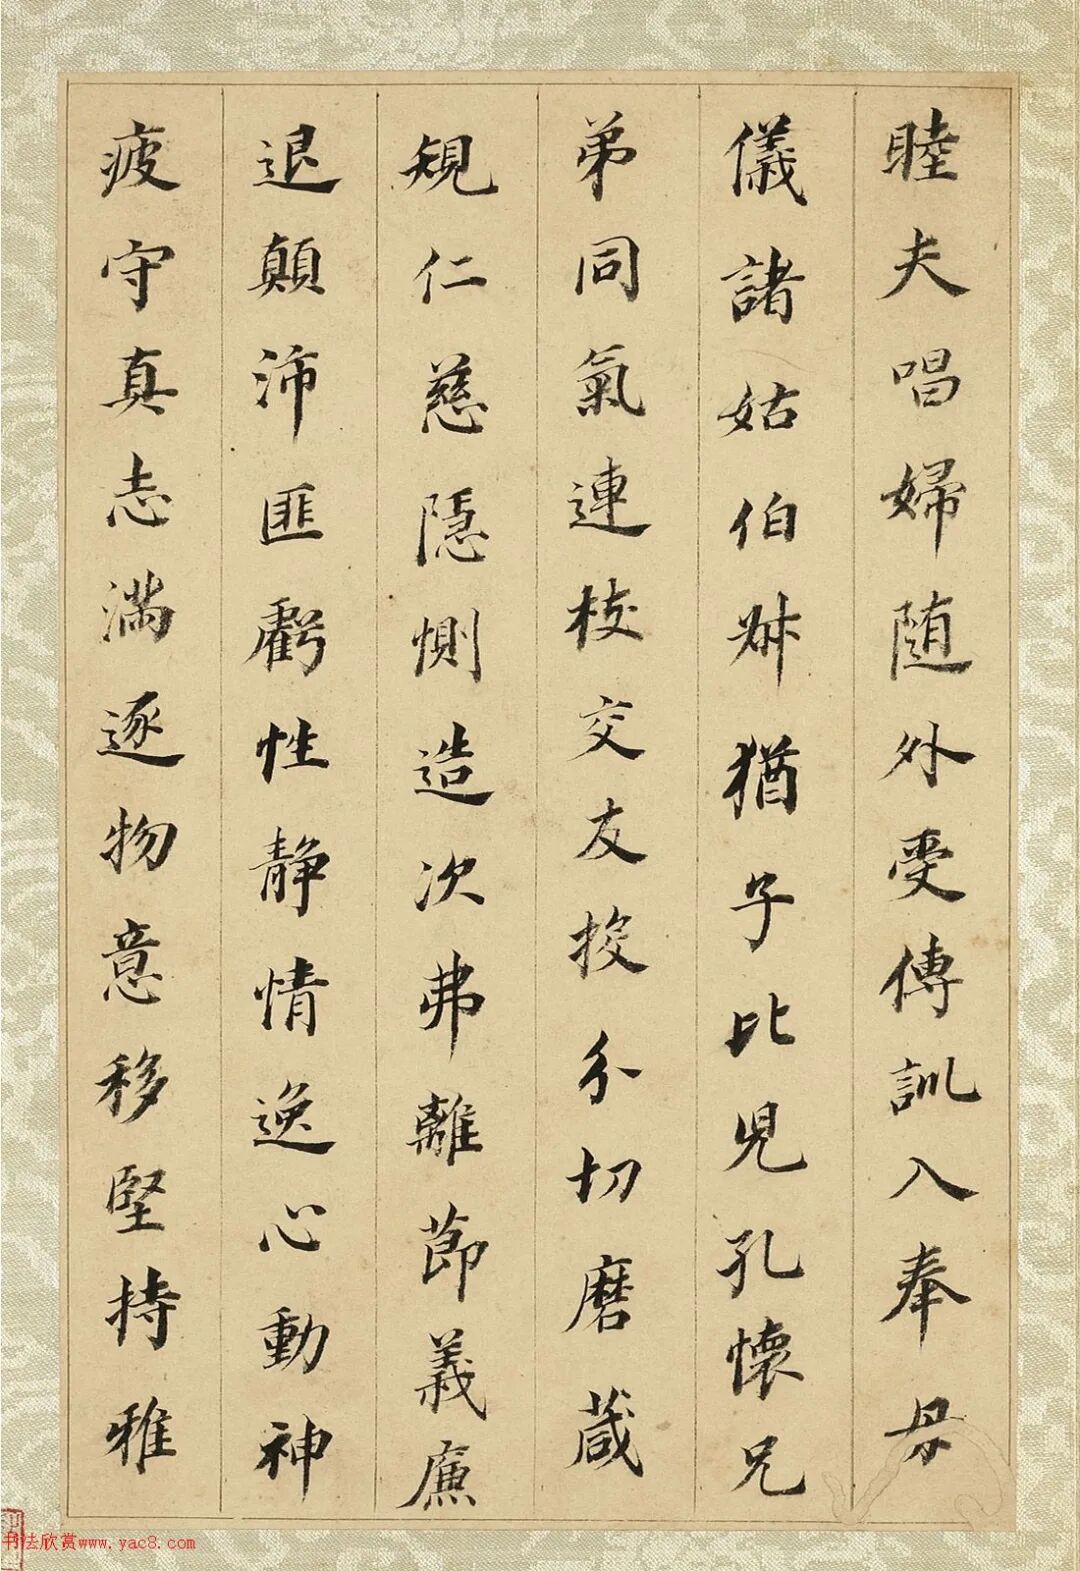 睦夫唱婦随外受傅訓入奉母
儀諸姑伯叔猶子比兒孔懷兄
弟同氣連枝交友投分切磨箴
規仁慈隱惻造次弗離節義廉
退顛沛匪虧性靜情逸心動神
疲守真志滿逐物意移堅持雅
书法欣赏www.yac8.com